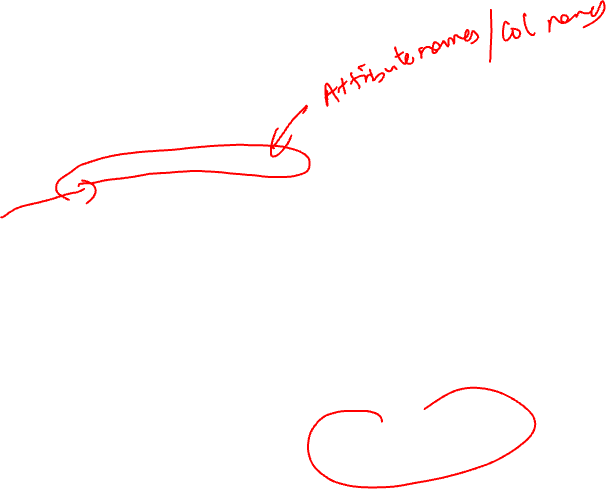 Attribute names / Col names